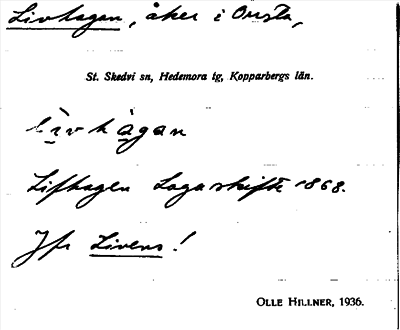 Livhagen, åker i Onsta,
St. Skedvi sn, Hedemora tg, Kopparbergs län.
lìvhàgan
Lifhagen Lagaskifte 1868.
Jfr Livens!
OLLE HILLNER, 1936.